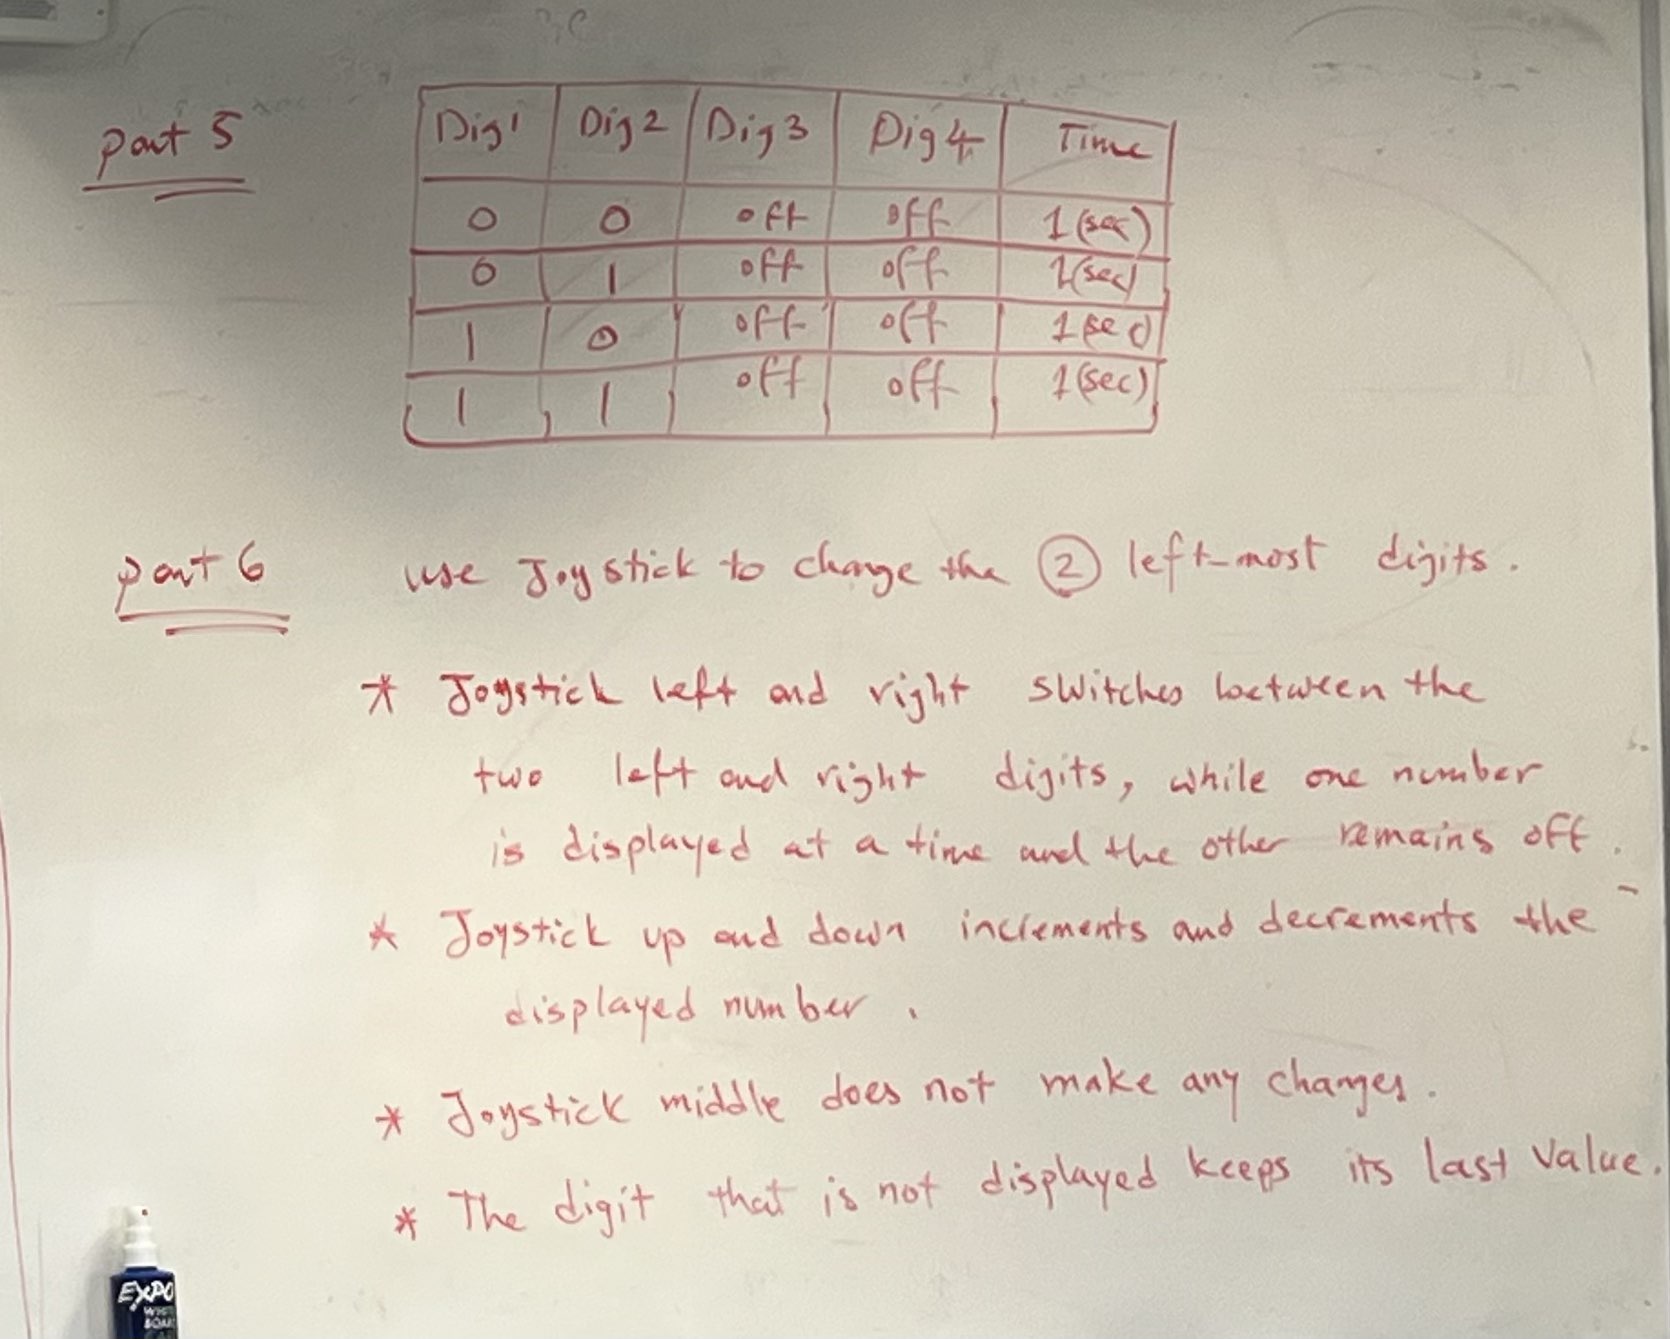 Part 5
Dig 1 Dig 2 Dig 3 Dig 4 Time
0 0 off off 1 (sec)
0 1 off off 1(sec)
1 0 off off 1(sec)
1 1 off off 1(sec)
Part 6 use Joystick to change the 2 left-most digits.
* Joystick left and right switches between the
two left and right digits, while one number
is displayed at a time and the other remains off.
* Joystick up and down increments and decrements the
displayed number.
* Joystick middle does not make any changes.
* The digit that is not displayed keeps its last value.
EXPO